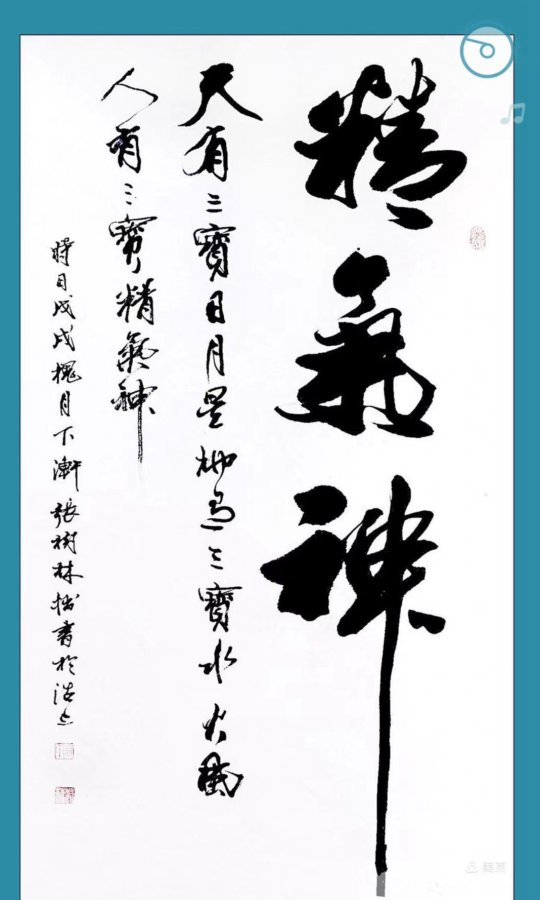 精氣神
天有三寶日月星地有三寶水火風
人有三寶精氣神
時日戊戌槐月下澣張樹林拙書於
美篇